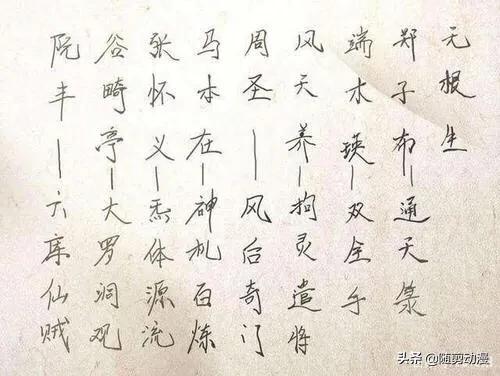 无根生
郑子布—通天箓
端木瑛—双全手
风天养—拘灵遣将
周圣—风后奇门
马本在—神机百炼
张怀义—炁体源流
谷畸亭—大罗洞观
阮丰—六库仙贼
头条 @随剪动漫